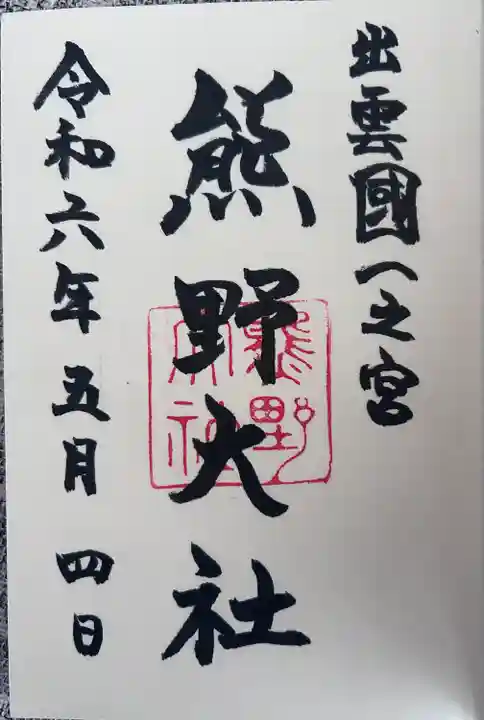 出雲國一之宮
熊野大社
熊野大社
令和六年五月四日